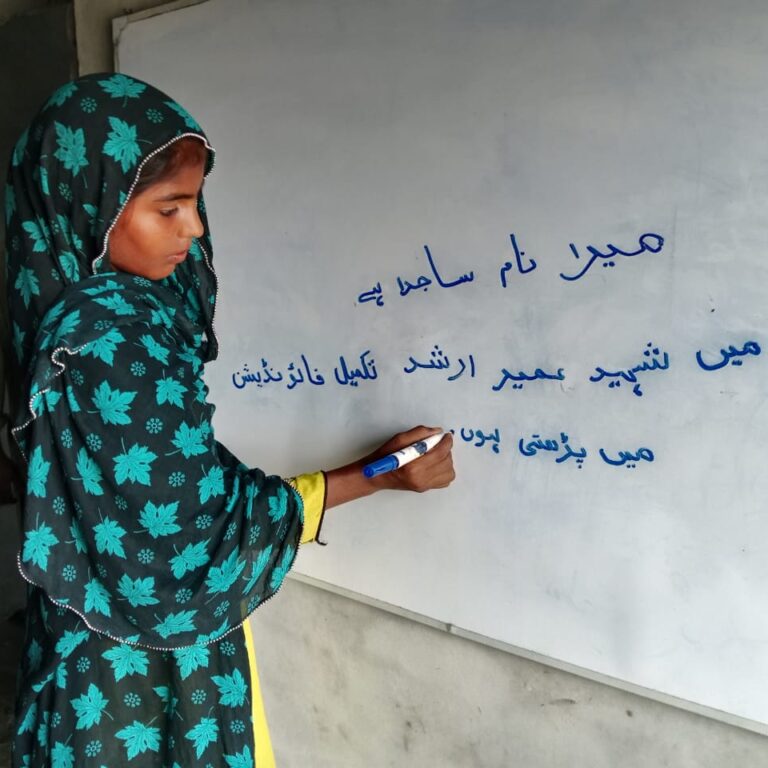 میرا نام ساجدہ ہے
میں شہید عمیر ارشد تکمیل فائڈنڈیشن
میں پڑھتی ہوں۔